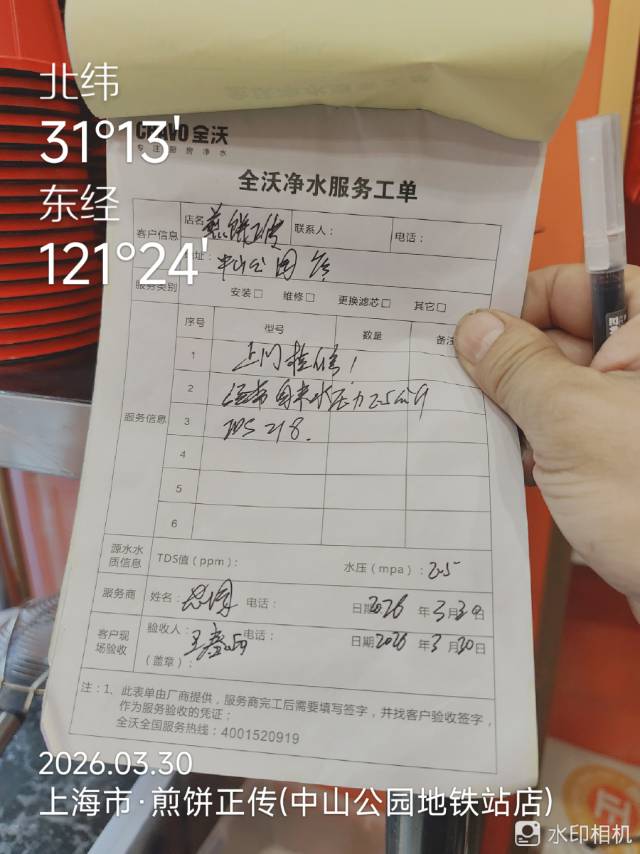 北纬
31°13'
东经
121°24'
全沃
专注厨房净水
全沃净水服务工单
客户信息 店名 煎饼正传 联系人： 电话：
地址： 中山公园店
服务类别 安装□ 维修□ 更换滤芯□ 其它□
服务信息 序号 型号 数量 备注
1 上门检修！
2 自来水压力2.5公斤
3 TDS 218.
4
5
6
源水水质信息 TDS值（ppm）： 水压（mpa）：2.5
服务商 姓名： 电话： 日期2026年3月30日
客户现场验收 验收人：王 电话： 日期2026年3月30日
（盖章）：
注：1、此表单由厂商提供，服务商完工后需要填写签字，并找客户验收签字，
作为服务验收的凭证；
全沃全国服务热线：4001520919
2026.03.30
上海市·煎饼正传(中山公园地铁站店)
水印相机